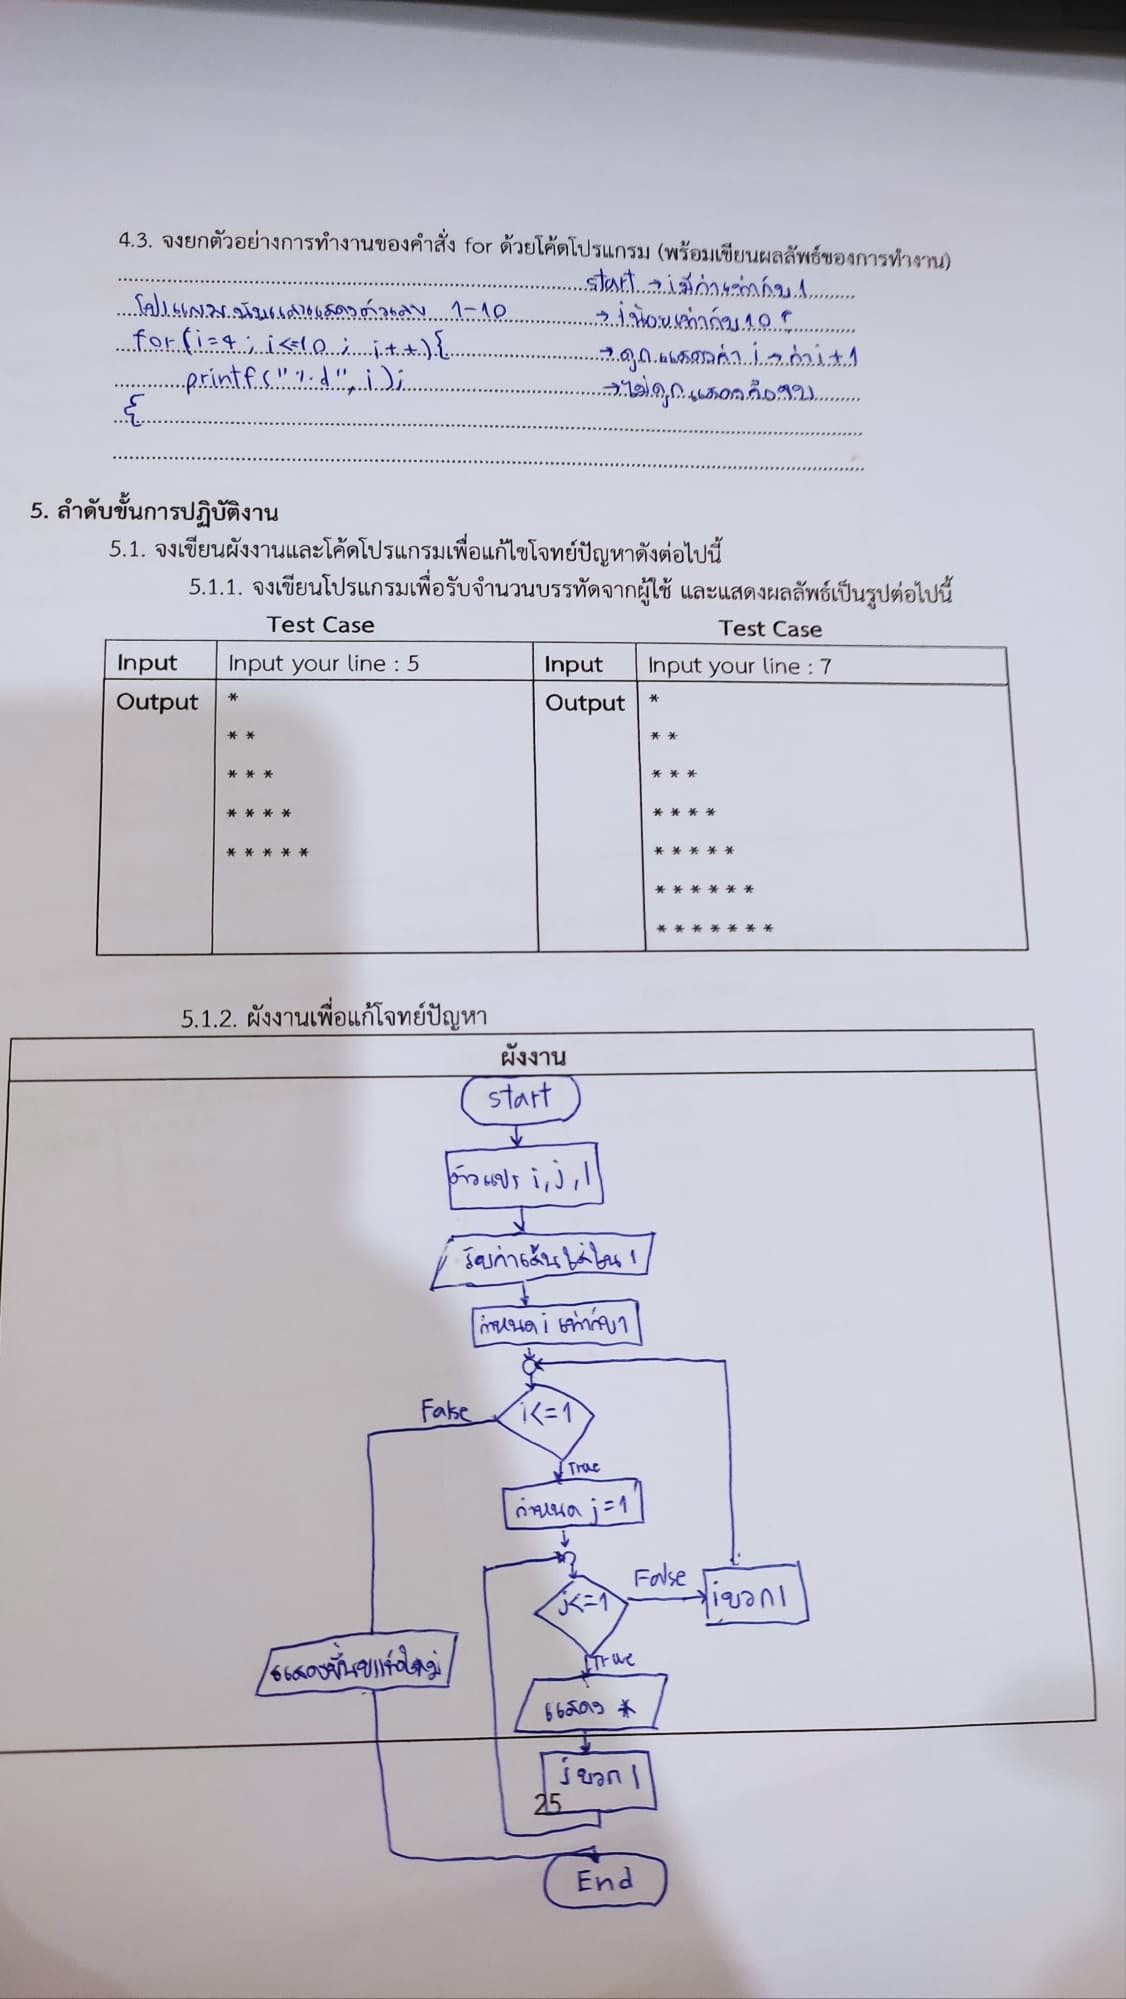 4.3. จงยกตัวอย่างการทำงานของคำสั่ง for ด้วยโค้ดโปรแกรม (พร้อมเขียนผลลัพธ์ของการทำงาน)
start → i มีค่าเท่ากับ 1
1-10 → i น้อยเท่ากับ 10 ?
for(i=1; i<=10; i++){ → ถูก แสดงค่า i → ค่า i+1
printf("%d", i); → ไม่ถูก แสดงคือจบ
{
5. ลำดับขั้นการปฏิบัติงาน
5.1. จงเขียนผังงานและโค้ดโปรแกรมเพื่อแก้ไขโจทย์ปัญหาดังต่อไปนี้
5.1.1. จงเขียนโปรแกรมเพื่อรับจำนวนบรรทัดจากผู้ใช้ และแสดงผลลัพธ์เป็นรูปต่อไปนี้
Test Case Test Case
Input Input your line : 5 Input Input your line : 7
Output * Output *
* * * *
* * * * * *
* * * * * * * *
* * * * * * * * * *
* * * * * *
* * * * * * *
5.1.2. ผังงานเพื่อแก้โจทย์ปัญหา
ผังงาน
start
ตัวแปร i, j, l
รับค่าเส้นใส่ใน l
กำหนด i เท่ากับ 1
False i<=1
True
กำหนด j=1
j<=1 False i บวก 1
True
แสดงขึ้นบรรทัดใหม่
แสดง *
j บวก 1
25
End